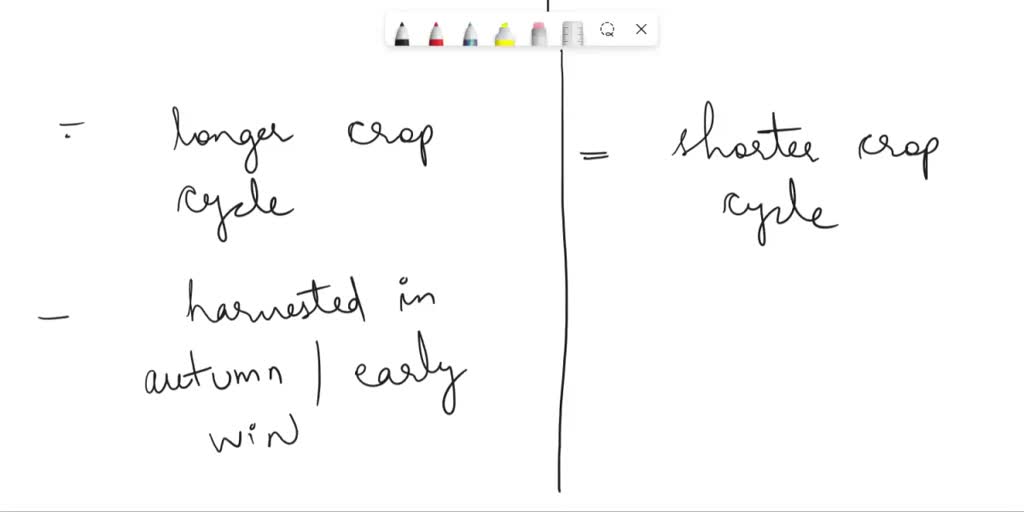 longer crop
cycle
- harvested in
autumn | early
win
= shorter crop
cycle